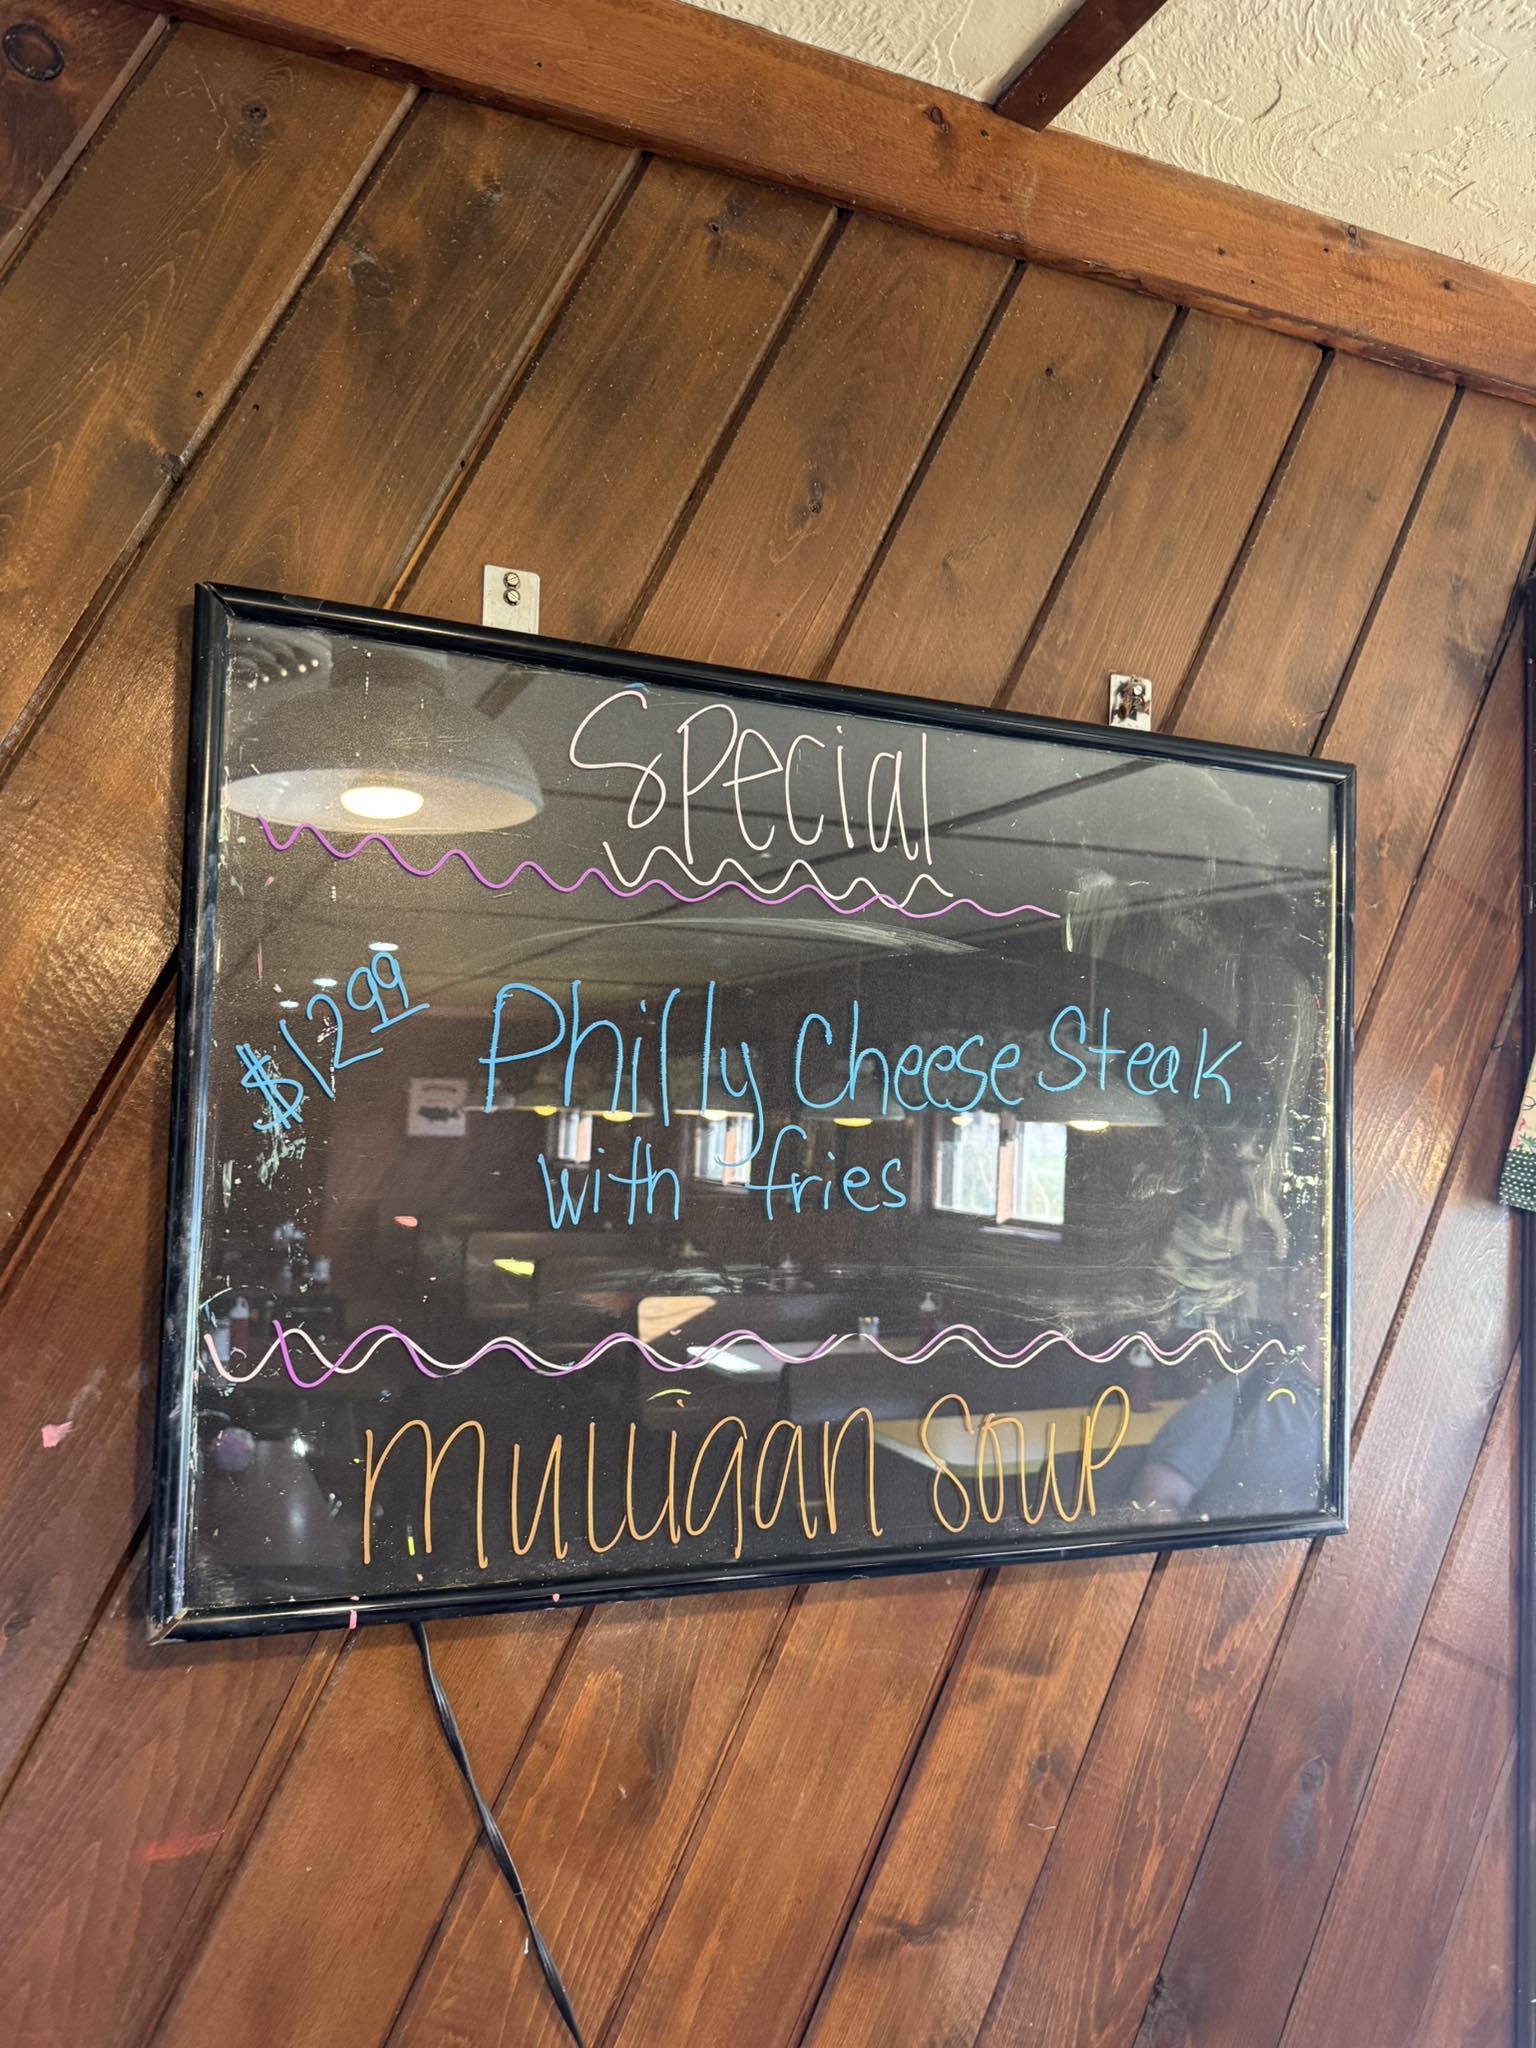 Special
$12.99
Philly Cheese Steak
with fries
Mulligan Soup